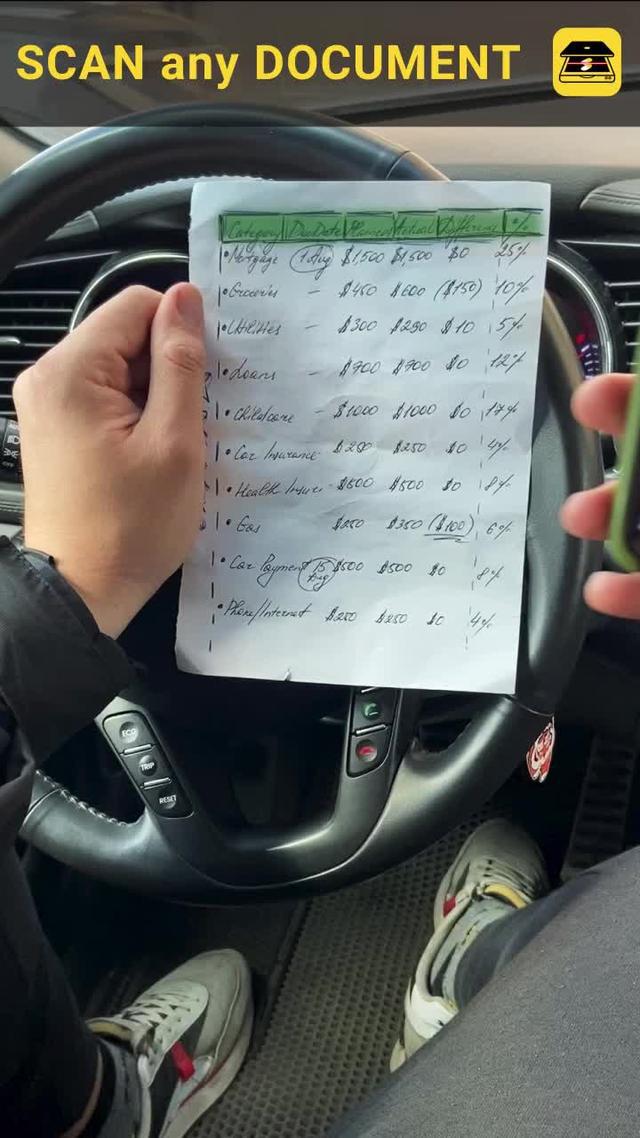 SCAN any DOCUMENT
Category Due Date Planned Actual Difference %
• Mortgage 1 Aug $1,500 $1,500 $0 25%
• Groceries - $450 $600 ($150) 10%
• Utilities - $300 $290 $10 5%
• Loans - $700 $700 $0 12%
• Childcare - $1000 $1000 $0 17%
• Car Insurance $250 $250 $0 4%
• Health Insur - $500 $500 $0 8%
• Gas $250 $350 ($100) 6%
• Car Payment 15 Aug $500 $500 $0 8%
• Phone/Internet $250 $250 $0 4%
ECO
TRIP
RESET